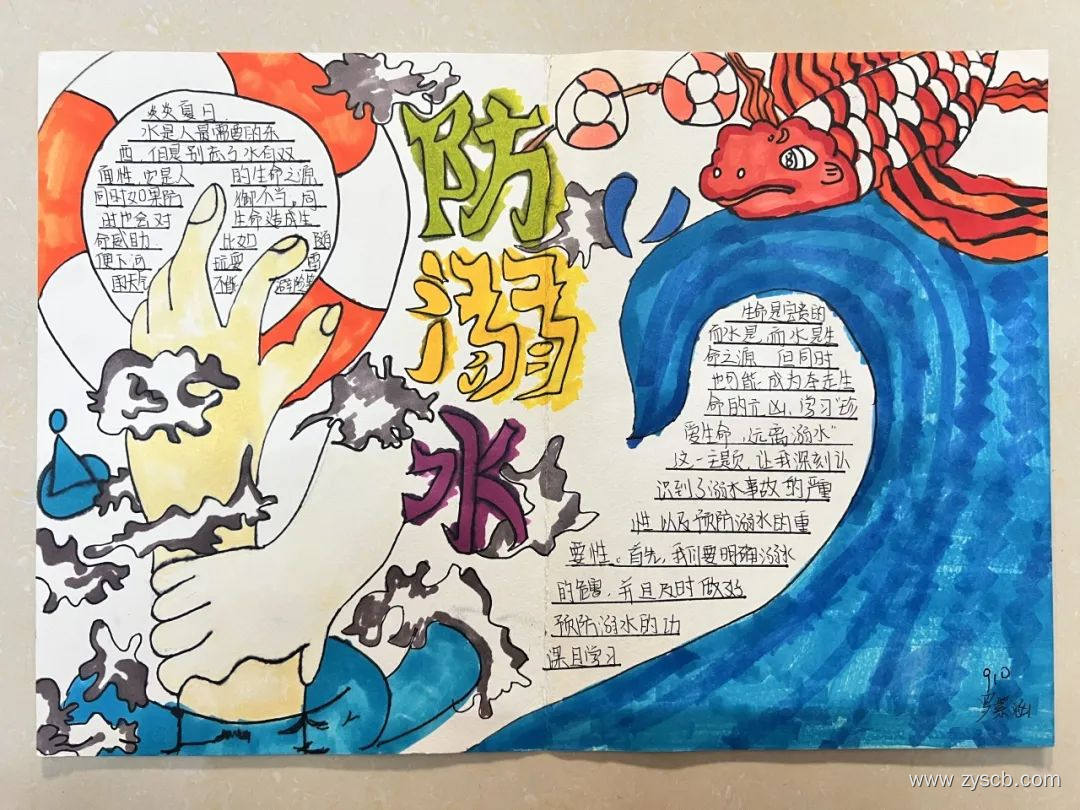 炎炎夏日
水是人最需要的东
西,但是别忘了水有双
面性,它是人 的生命之源
同时如果防 御不当,同
时也会对 生命造成生
命威胁 比如 随
便下河 玩耍 雷
雨天气 不能 避险等
防
溺
水
生命是宝贵的
而水是,而水是生
命之源 但同时
也可能成为夺走生
命的元凶,学习“珍
爱生命,远离溺水”
这一主题,让我深刻认
识到了溺水事故的严重
性以及预防溺水的重
要性。首先,我们要明确溺水
的危害,并且及时做好
预防溺水的功
课且学习
910
www.zyscb.com